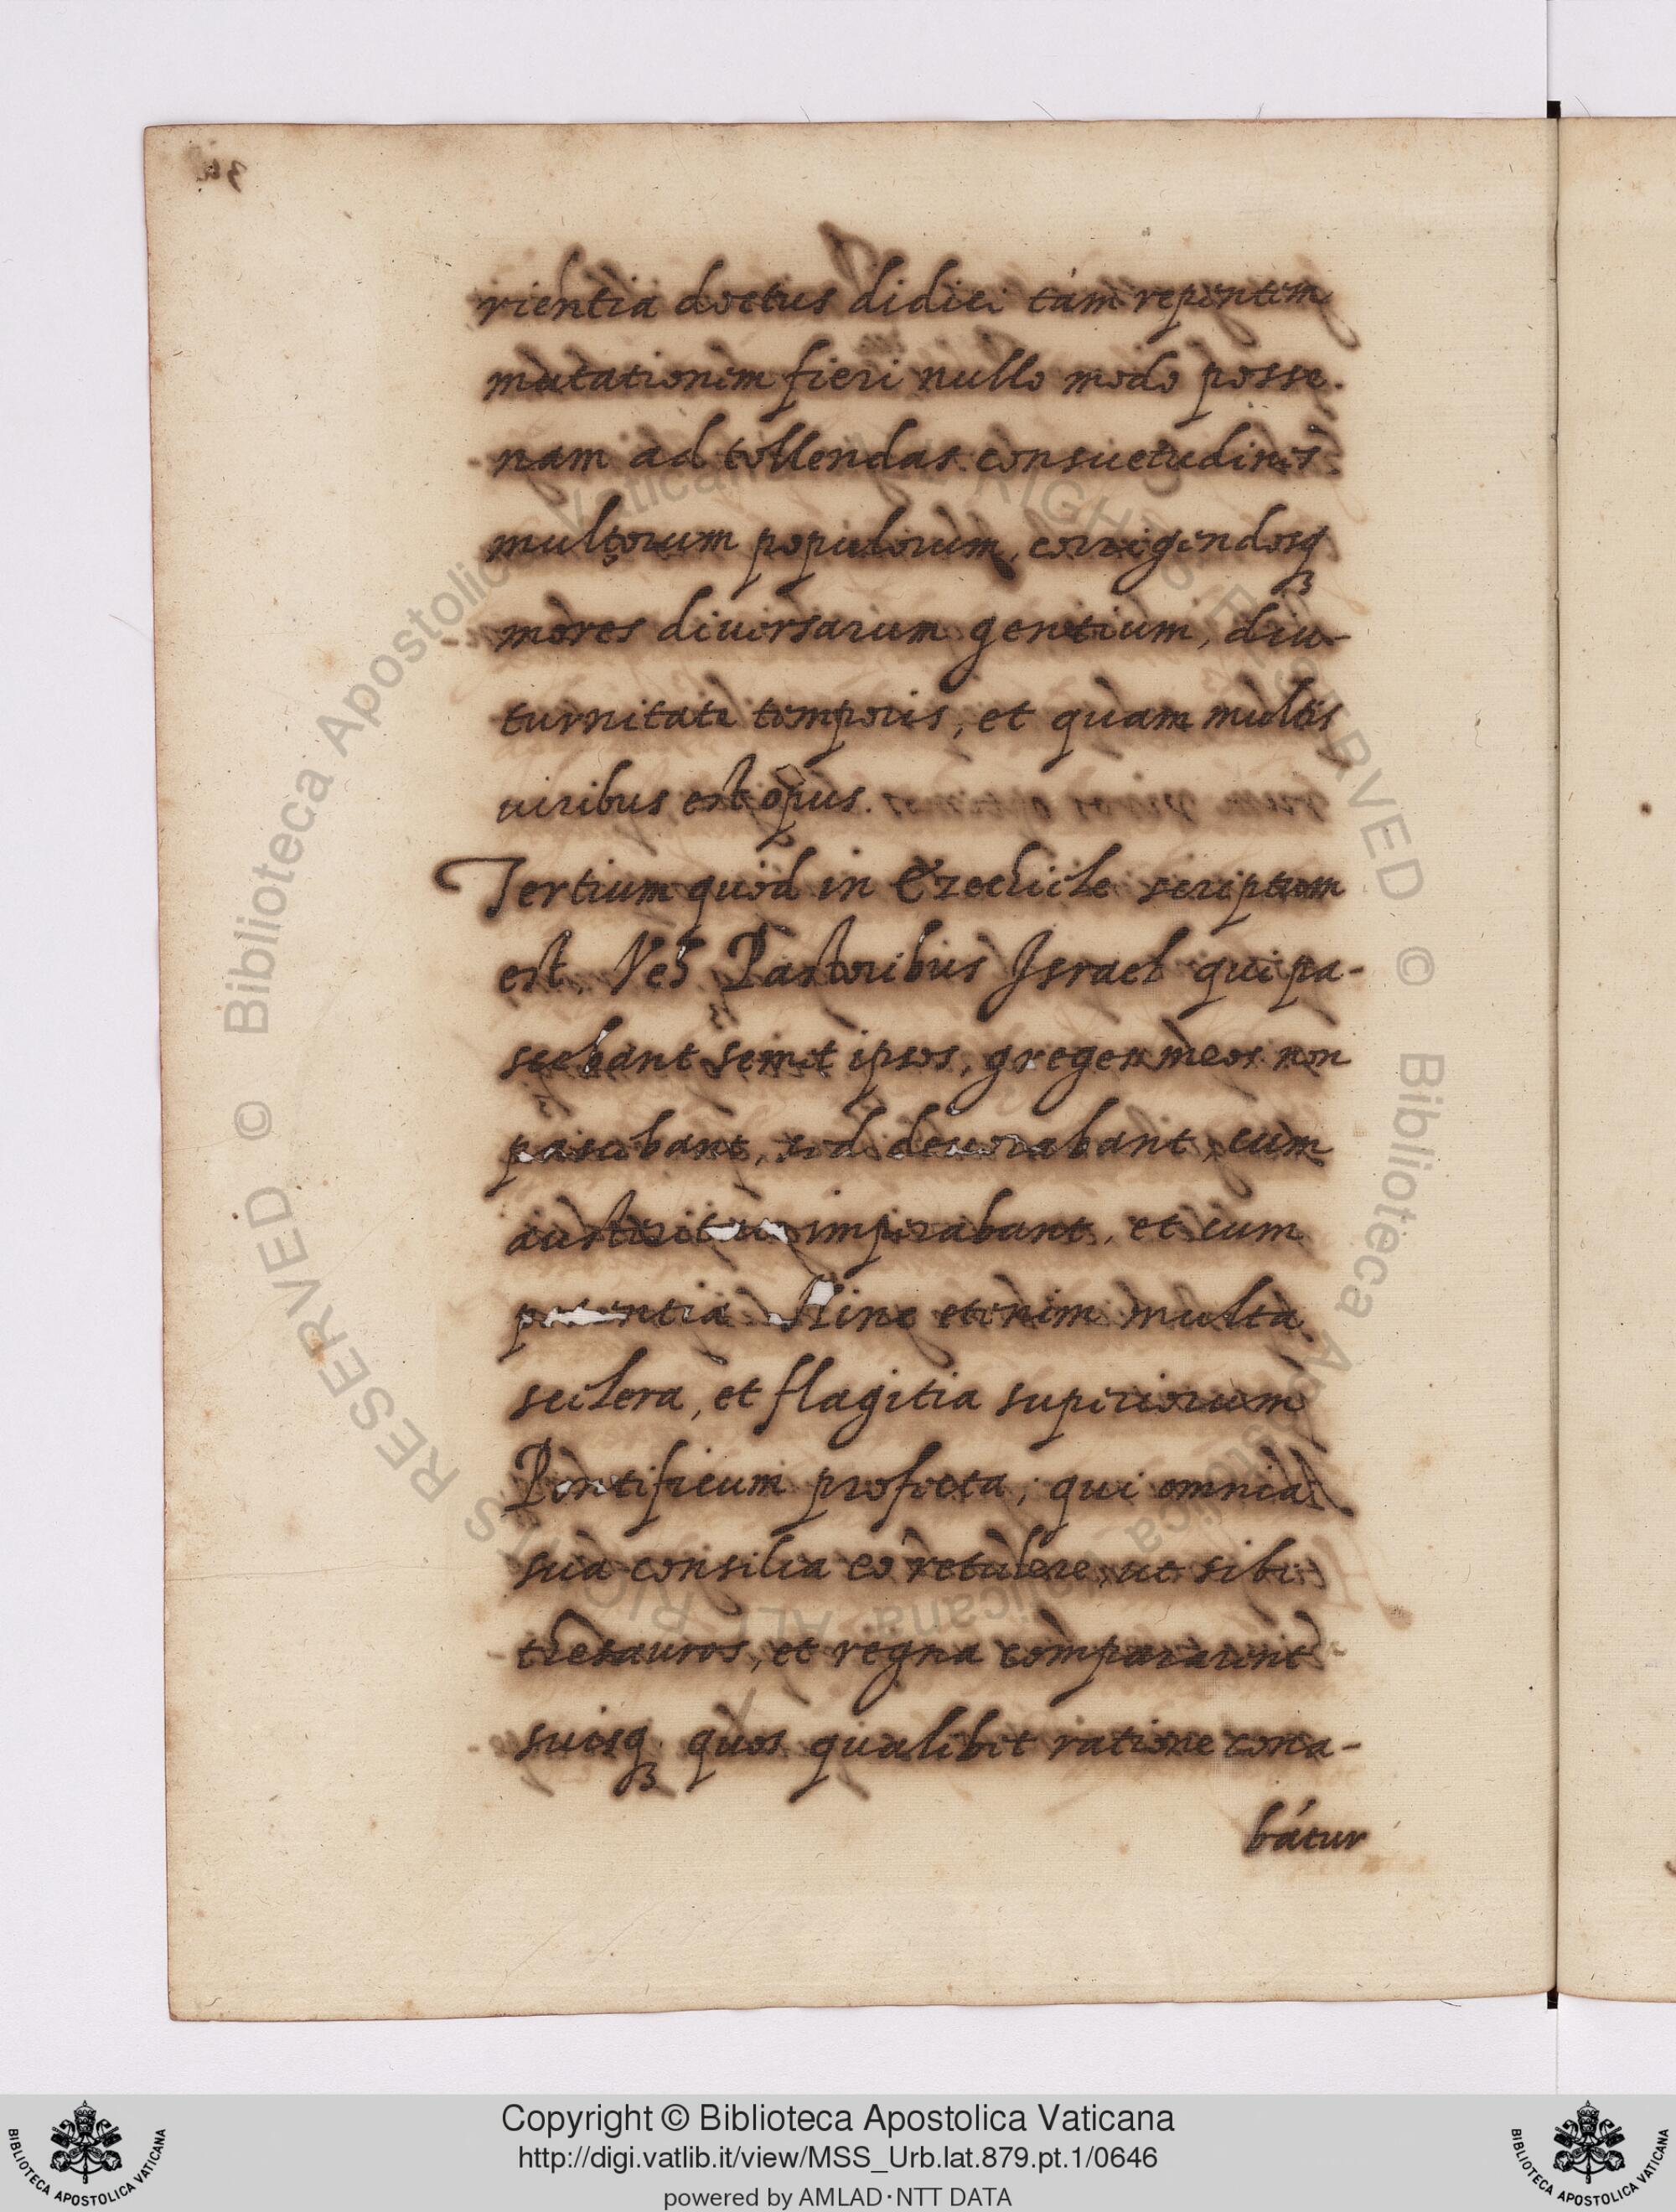 rientia doctus didici tám repentem
mutationem fieri nullo modo posse.
nam ad tollendas consuetudines
multorum populorum, corrigendosq3
mores diuersarum gentium, diu-
turnitate temporis, et quam multis
uiribus est opus.
Tertium quod in Ezechiele scriptum
est. Veh Pastoribus Israel qui pa-
scebant semet ipsos, greges meos non
pascebant, sed deuorabant, cum
imperabant, et cum
potentia Hinc etenim multa
scelera, et flagitia superiorum
Pontificum profecta, qui omnia
sua consilia eo retulere, ut sibi
thesauros, et regna compararent
suosq3 quos qualibet ratione cona-
bátur
© Biblioteca Apostolica Vaticana ALL RIGHTS RESERVED © Biblioteca Apostolica Vaticana ALL RIGHTS RESERVED
Copyright © Biblioteca Apostolica Vaticana
http://digi.vatlib.it/view/MSS_Urb.lat.879.pt.1/0646
powered by AMLAD·NTT DATA
BIBLIOTECA APOSTOLICA VATICANA
BIBLIOTECA APOSTOLICA VATICANA